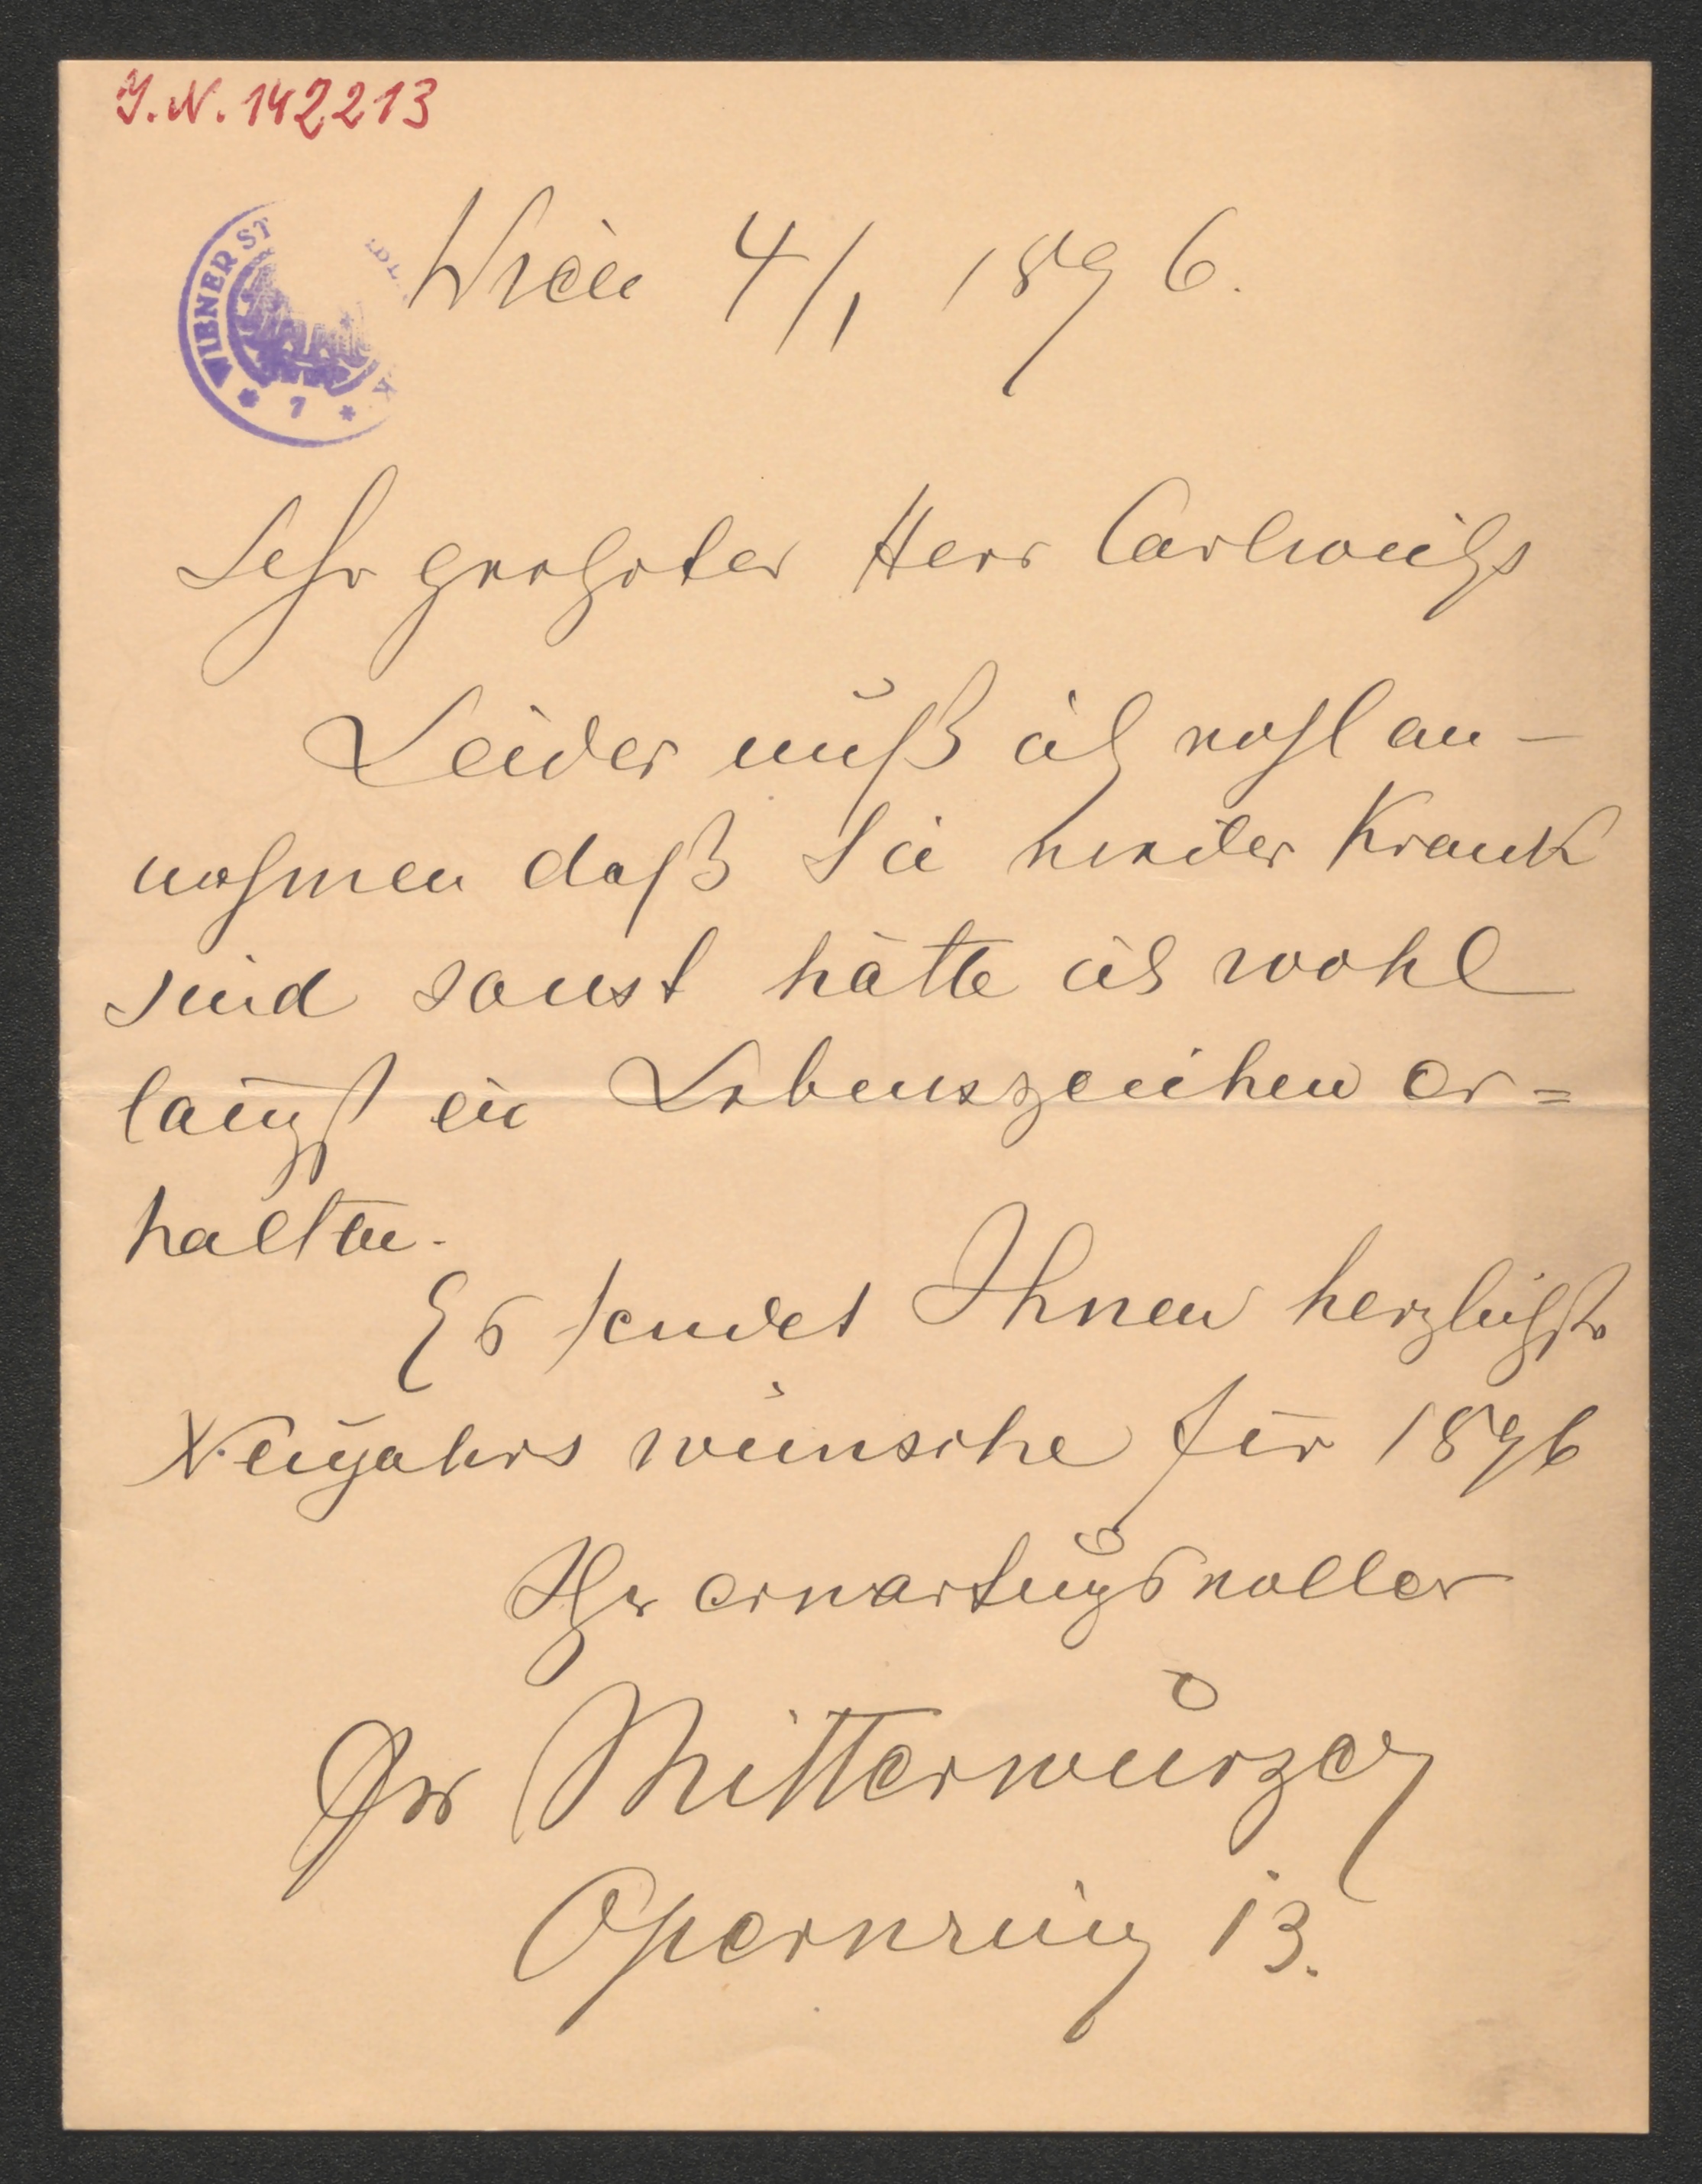 I.N. 142213
WIENER ST
7
Wien 4/1 1896.
Sehr geehrter Herr Carlweihs
Leider muß ich wohl an-
nehmen daß Sie wieder Krank
sind sonst hätte ich wohl
längst ein Lebenszeichen er=
halten.
Es sendet Ihnen herzlichste
Neujahrs wünsche für 1896
Ihr erwartungsvoller
Mitterwurzer
Opernring 13.